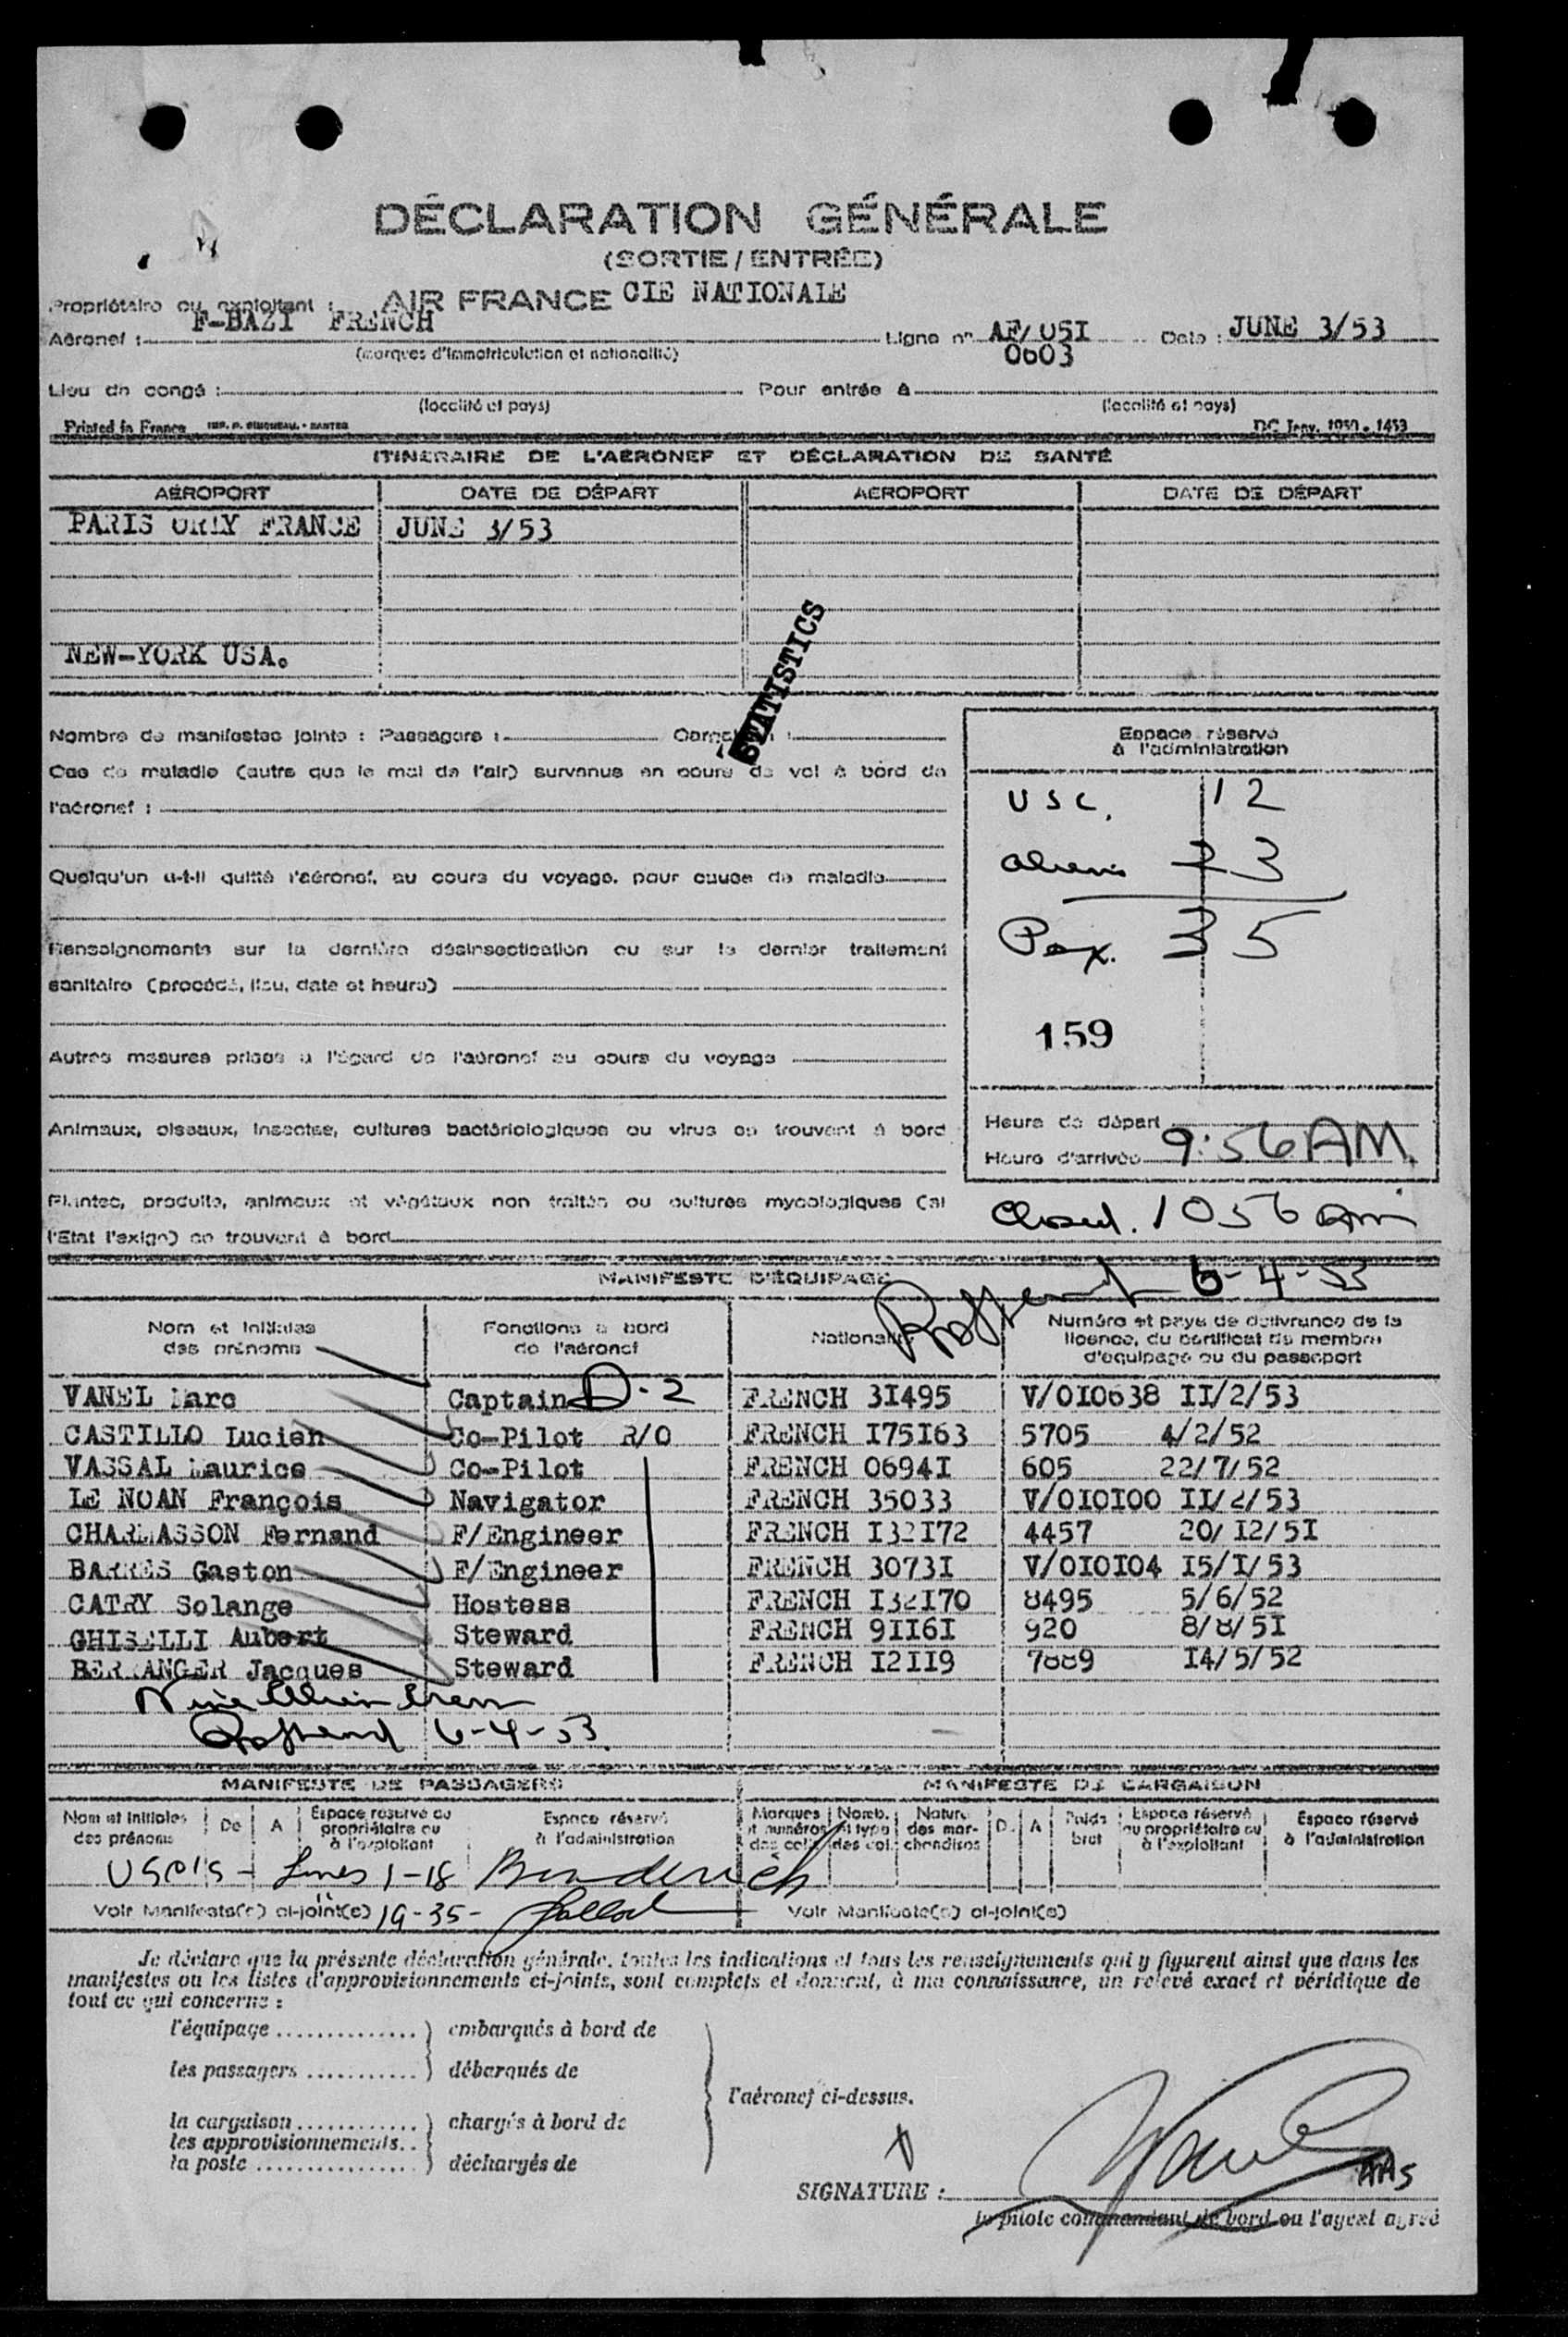 DÉCLARATION GÉNÉRALE
(SORTIE / ENTRÉE)
Propriétaire ou exploitant : AIR FRANCE CIE NATIONALE
Aéronef : F-BAZI FRENCH Ligne n° AF/051 Date : JUNE 3/53
(marques d'immatriculation et nationalité) 0603
Lieu de congé : Pour entrée à
(localité et pays) (localité et pays)
Printed in France DC Janv. 1950 - 1453
ITINÉRAIRE DE L'AÉRONEF ET DÉCLARATION DE SANTÉ
AÉROPORT DATE DE DÉPART AÉROPORT DATE DE DÉPART
PARIS ORLY FRANCE JUNE 3/53
NEW-YORK USA.
STATISTICS
Nombre de manifestes joints : Passagers :
Cas de maladie (autre que le mal de l'air) survenus en cours de vol à bord de
l'aéronef :
Quelqu'un a-t-il quitté l'aéronef, au cours du voyage, pour cause de maladie
Renseignements sur la dernière désinsectisation ou sur le dernier traitement
sanitaire (procédé, lieu, date et heure)
Autres mesures prises à l'égard de l'aéronef au cours du voyage
Animaux, oiseaux, insectes, cultures bactériologiques ou virus se trouvant à bord
Plantes, produits, animaux et végétaux non traités ou cultures mycologiques (si
l'Etat l'exige) se trouvant à bord
Espace réservé
à l'administration
USC. 12
aliens 23
Pax. 35
159
Heure de départ
Heure d'arrivée 9:56 AM.
Closed. 1056 am
6-4-53
MANIFESTE D'ÉQUIPAGE
Nom et Initiales des prénoms Fonctions à bord de l'aéronef Nationalité Numéro et pays de délivrance de la licence, du certificat de membre d'équipage ou du passeport
VANEL Marc Captain D-2 FRENCH 3I495 V/0I0638 II/2/53
CASTILLO Lucien Co-Pilot R/O FRENCH I75I63 5705 4/2/52
VASSAL Maurice Co-Pilot FRENCH 0694I 605 22/7/52
LE NOAN François Navigator FRENCH 35033 V/0I0I00 II/2/53
CHARMASSON Fernand F/Engineer FRENCH I32I72 4457 20/I2/5I
BARRES Gaston F/Engineer FRENCH 3073I V/0I0I04 I5/I/53
CATRY Solange Hostess FRENCH I32I70 8495 5/6/52
GHISELLI Aubert Steward FRENCH 9II6I 920 8/8/5I
BERRANGER Jacques Steward FRENCH I2II9 7889 I4/5/52
Nine Alien Crew
6-4-53.
MANIFESTE DE PASSAGERS MANIFESTE DE CARGAISON
Nom et Initiales des prénoms De A Espace réservé au propriétaire ou à l'exploitant Espace réservé à l'administration Marques et numéros des colis Nomb. et type des col. Nature des marchandises D. A Poids brut Espace réservé au propriétaire ou à l'exploitant Espace réservé à l'administration
USPHS - Lines 1-18
Voir Manifeste(s) ci-joint(s) 19-35- Voir Manifeste(s) ci-joint(s)
Je déclare que la présente déclaration générale, toutes les indications et tous les renseignements qui y figurent ainsi que dans les
manifestes ou les listes d'approvisionnements ci-joints, sont complets et donnent, à ma connaissance, un relevé exact et véridique de
tout ce qui concerne :
l'équipage .............. embarqués à bord de
les passagers ........... débarqués de
l'aéronef ci-dessus.
la cargaison ............. chargés à bord de
les approvisionnements..
la poste ................ déchargés de
SIGNATURE : AAS
le pilote commandant de bord ou l'agent agréé